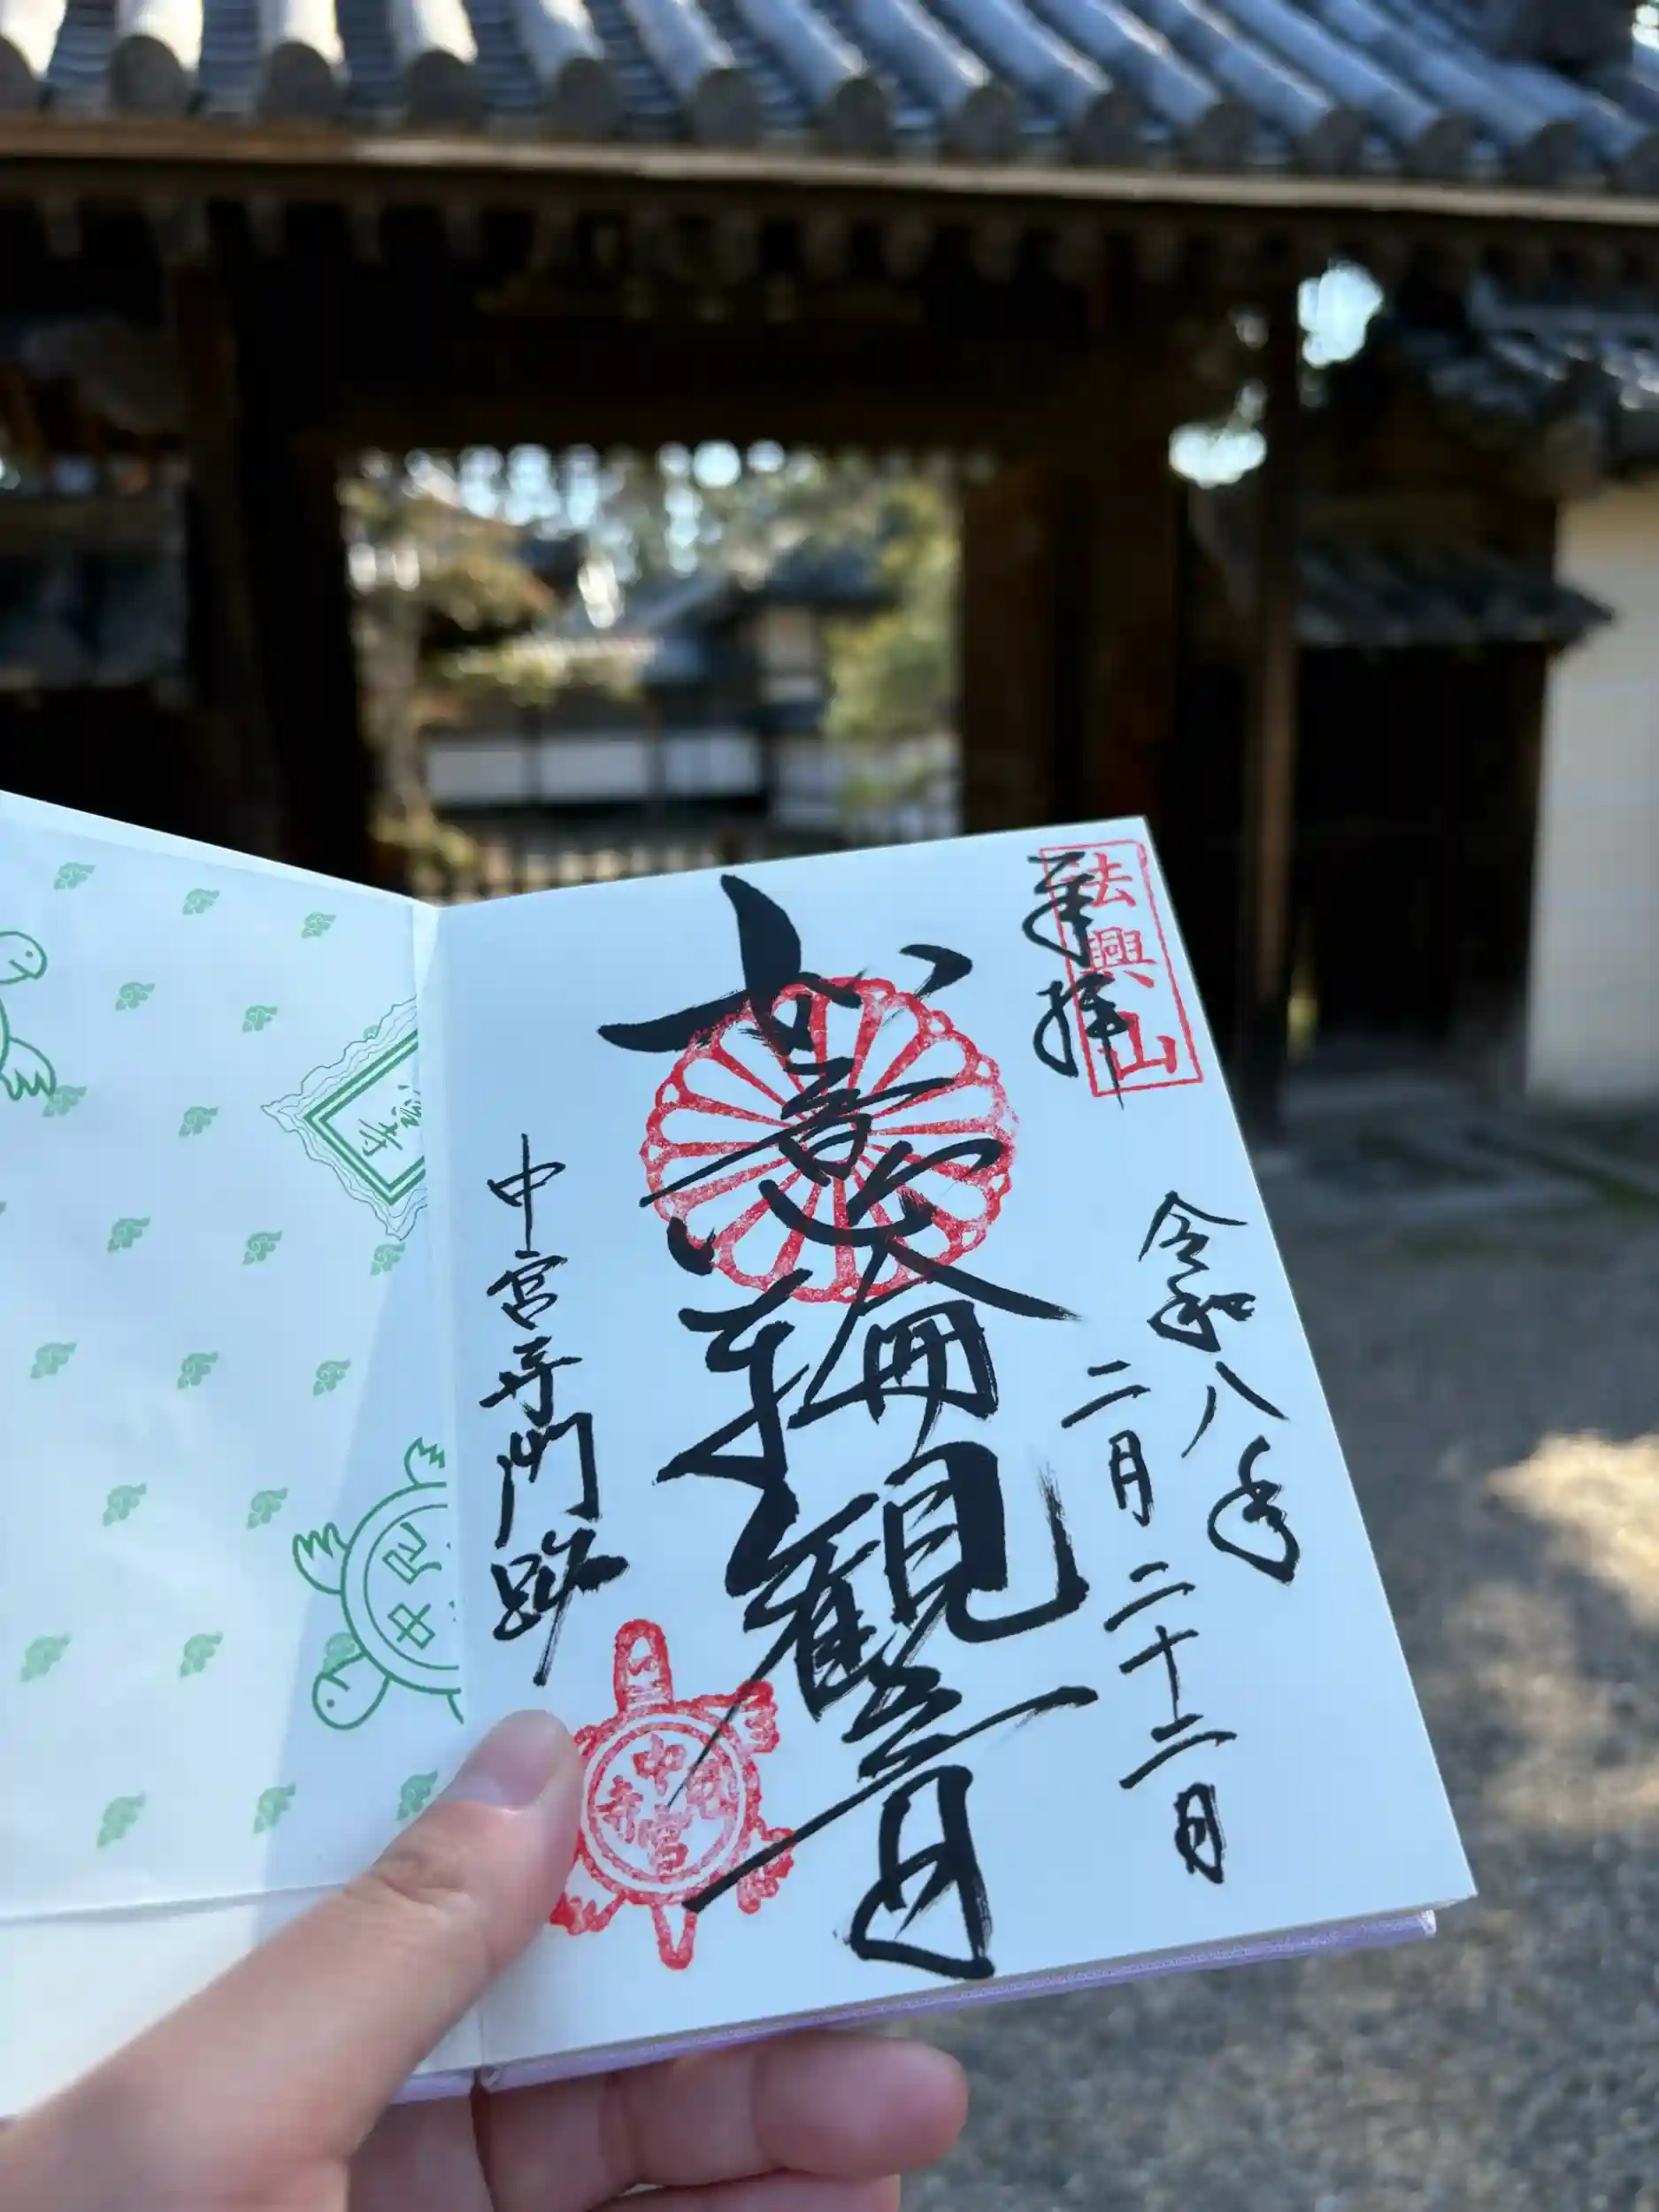 法興山
奉拝
令和八年
二月二十二日
如意輪観音
中宮寺門跡
中宮寺